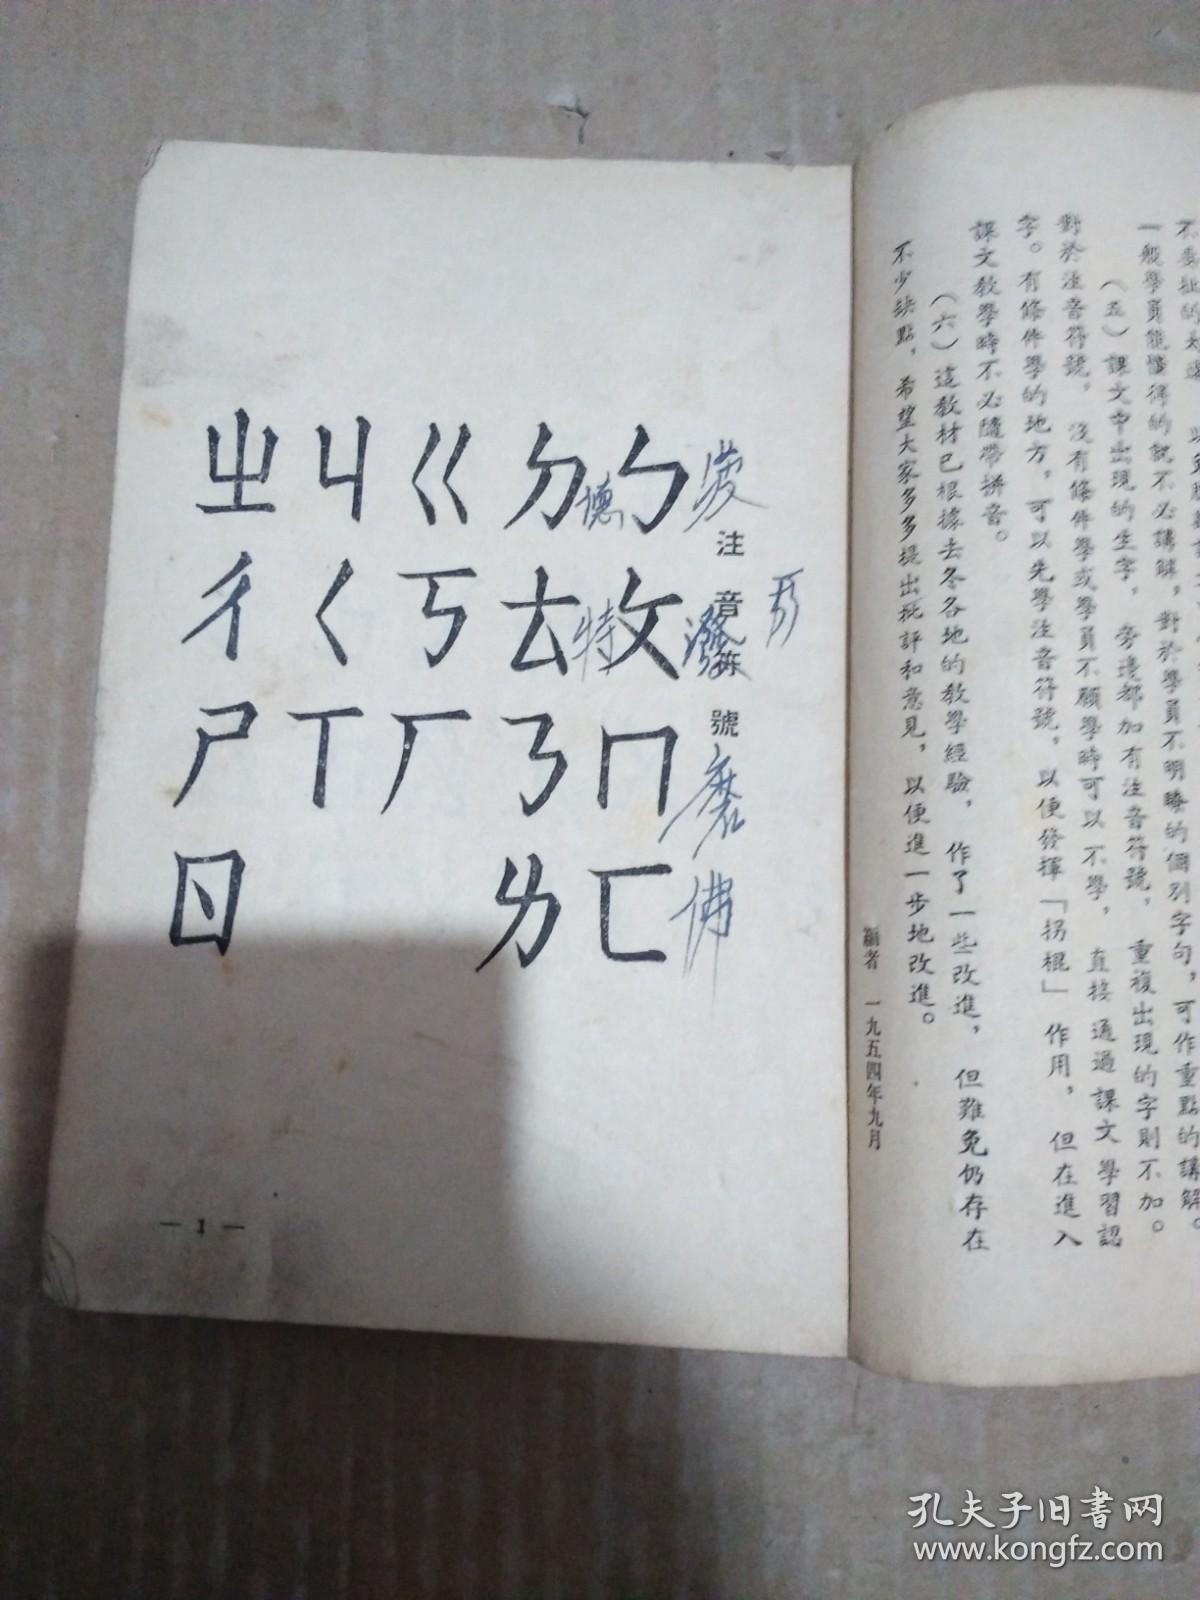 一般學員能懂得的就不必講解，對於學員不明瞭的個別字句，可作重點的講解。
（五）課文中出現的生字，旁邊都加有注音符號，重複出現的字則不加。
對於注音符號，沒有條件學或學員不願學時可以不學，直接通過課文學習認
字。有條件學的地方，可以先學注音符號，以便發揮「拐棍」作用，但在進入
課文教學時不必隨帶拼音。
（六）這教材已根據去冬各地的教學經驗，作了一些改進，但難免仍存在
不少缺點，希望大家多多提出批評和意見，以便進一步地改進。
編者 一九五四年九月
注音符號
磨
佛
ㄅㄆㄇㄈ
德
特
ㄉㄊㄋㄌ
ㄍㄎㄏ
ㄐㄑㄒ
ㄓㄔㄕㄖ
— 1 —
孔夫子旧书网
www.kongfz.com